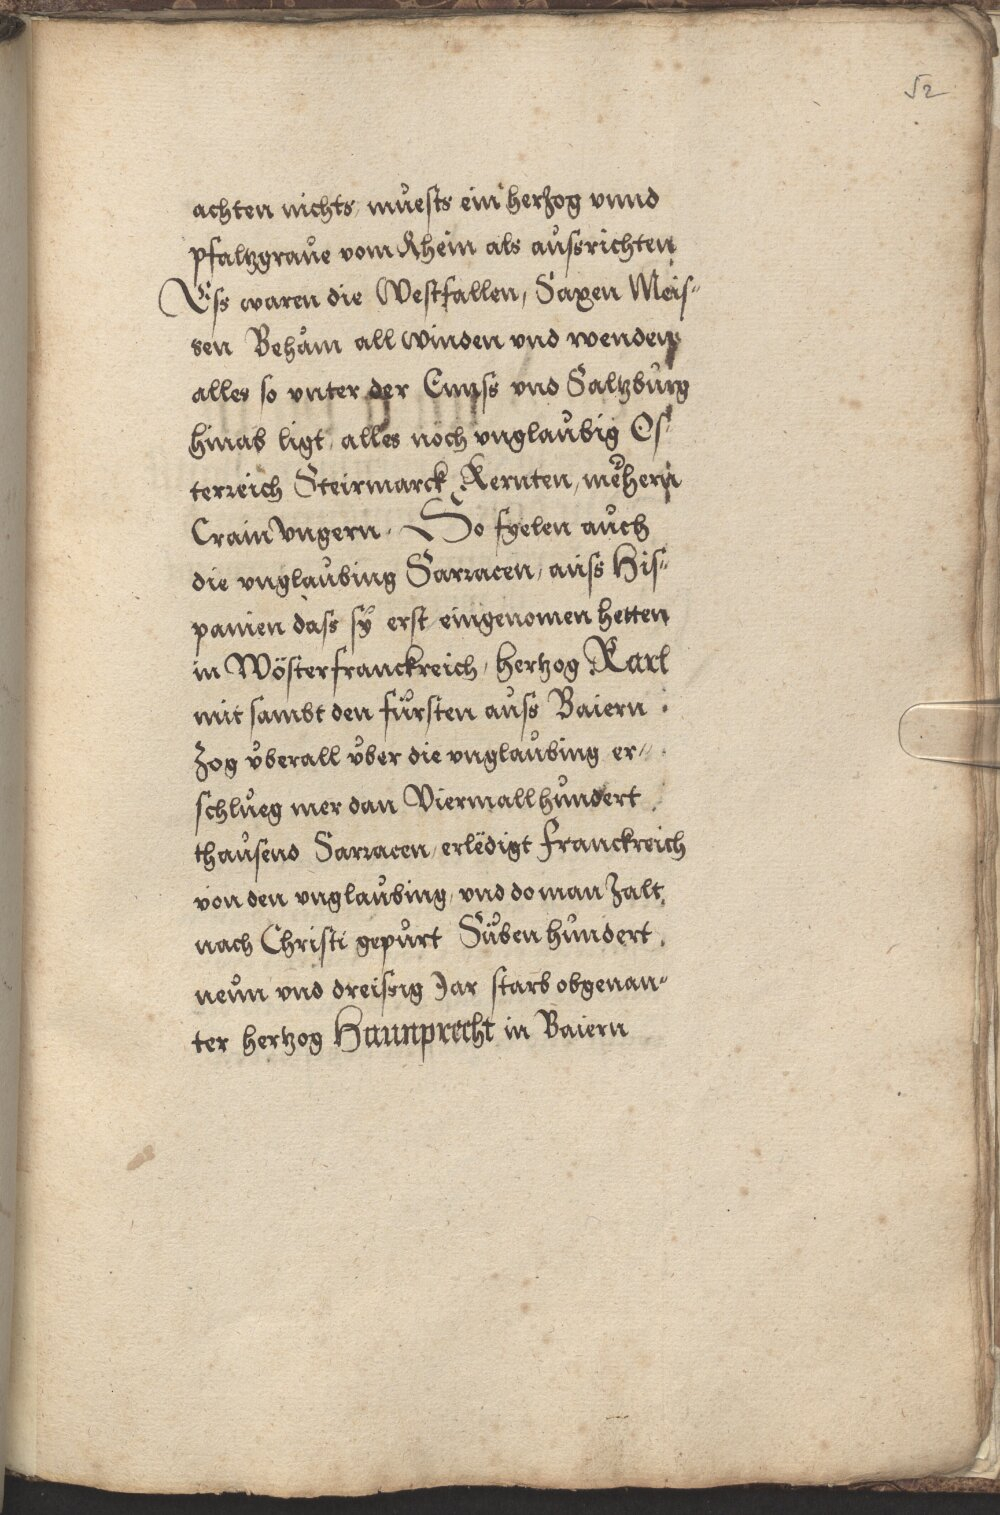 52
achten nichts, můests ein herzog vnnd
pfaltzgraůe vom Rhein als aůssrichten
Ess waren die Westfallen, Saxen Meis-
sen Behåm all winden vnd wenden
alles so vnter der Ennss vnd Saltzbůrg
hinab ligt, alles noch vnglaůbig Os-
terreich Steirmarck Kernten, mëhern
Crain Vngern. So fyelen aůch
die vnglaůbing Sarracen, aůss His-
panien dass sÿ erst eingenomen hetten
in Wösterfranckreich, hertzog Karl
mit sambt den fůrsten aůss Baiern
zog v̊berall v̊ber die vnglaůbing er-
schlůeg mer dan Viermall hůndert
thaůsend Sarracen, erlëdigt Franckreich
von den vnglaůbing, vnd do man zalt
nach Christi gepůrt Süben hůndert
neůn vnd dreissig Jar starb obgenan-
ter hertzog Haunprecht in Baiern